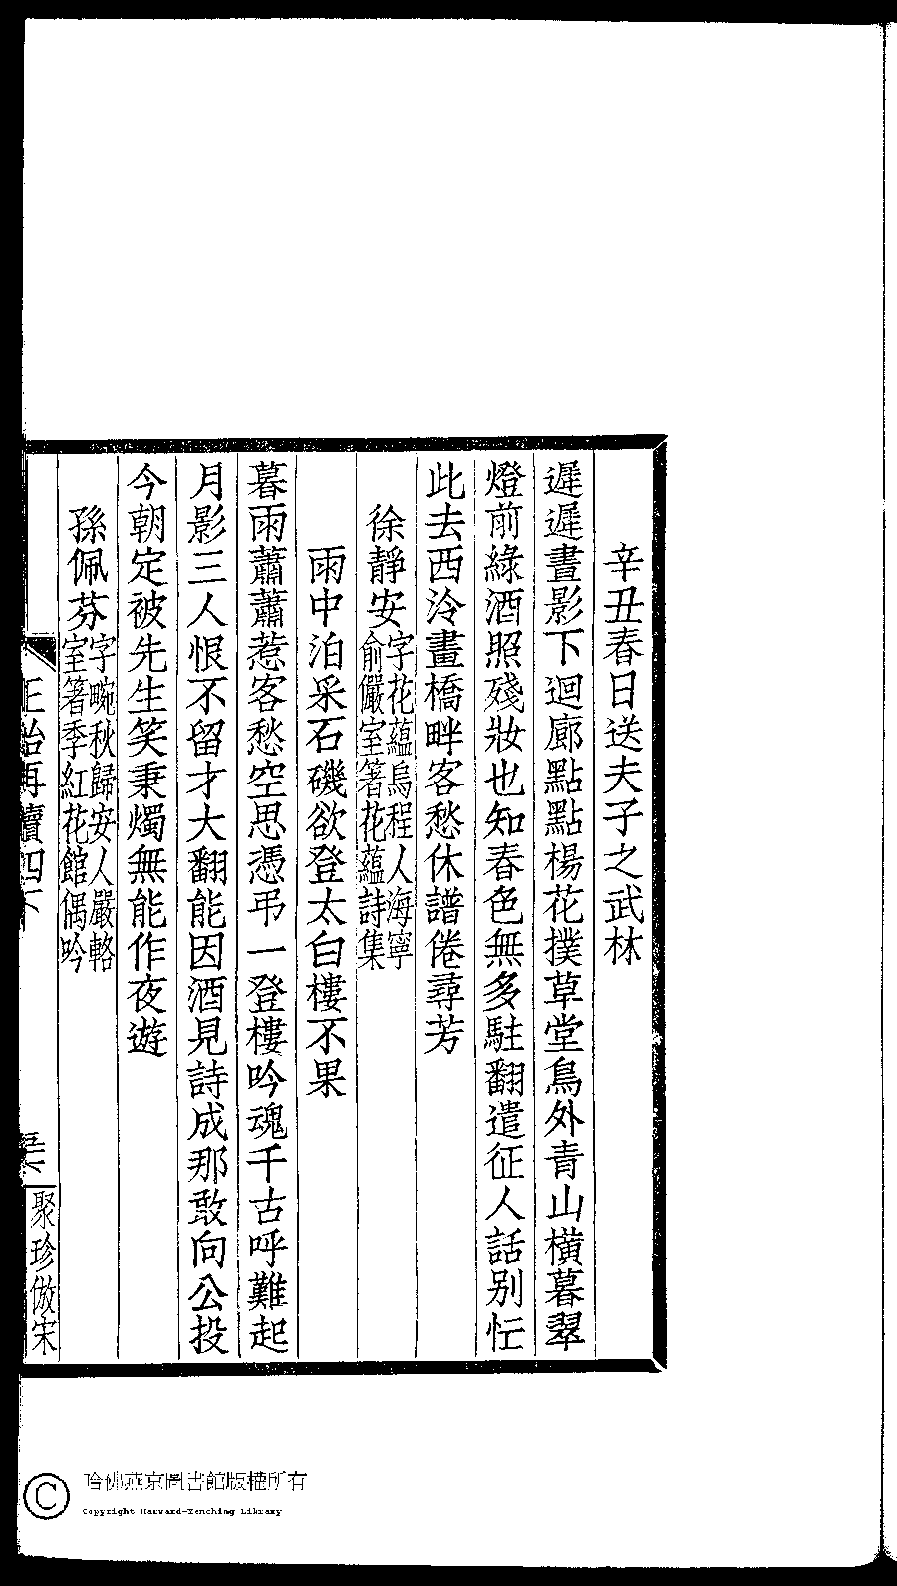 辛丑春日送夫子之武林
遲遲晝影下迴廊點點楊花撲草堂鳥外青山橫暮翠
燈前綠酒照殘妝也知春色無多駐翻遣征人話别忙
此去西泠畫橋畔客愁休譜倦尋芳
徐靜安字花蘊烏程人海寧
俞儼室箸花蘊詩集
雨中泊采石磯欲登太白樓不果
暮雨蕭蕭惹客愁空思憑弔一登樓吟魂千古呼難起
月影三人恨不留才大翻能因酒見詩成那敢向公投
今朝定被先生笑秉燭無能作夜遊
孫佩芬字畹秋歸安人嚴輅
室箸季紅花館偶吟
正始再續四下
聚珍倣宋
哈佛燕京圖書館版權所有
Copyright Harvard-Yenching Library